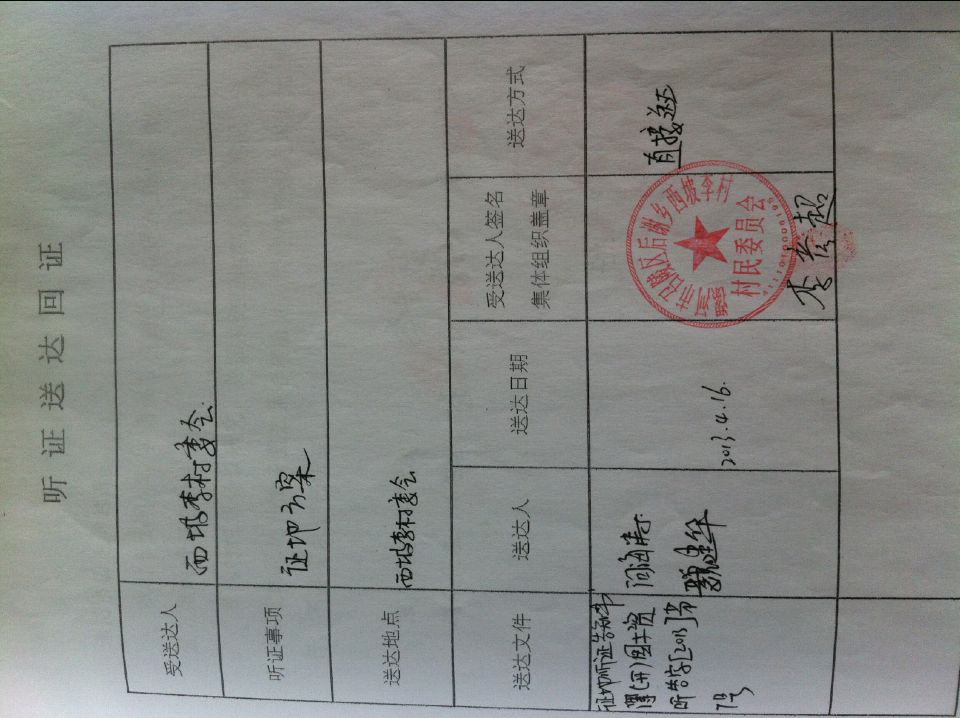 听证送达回证
受送达人 西坡李村委会
听证事项 征地方案
送达地点 西坡李村委会
送达文件 送达人 送达日期 受送达人签名 送达方式
集体组织盖章
征地听证告知书
国土资
听告字[2013]第
7号
2013.4.16.
直接送达
区后谢乡西坡李村
村民委员会
李彦超